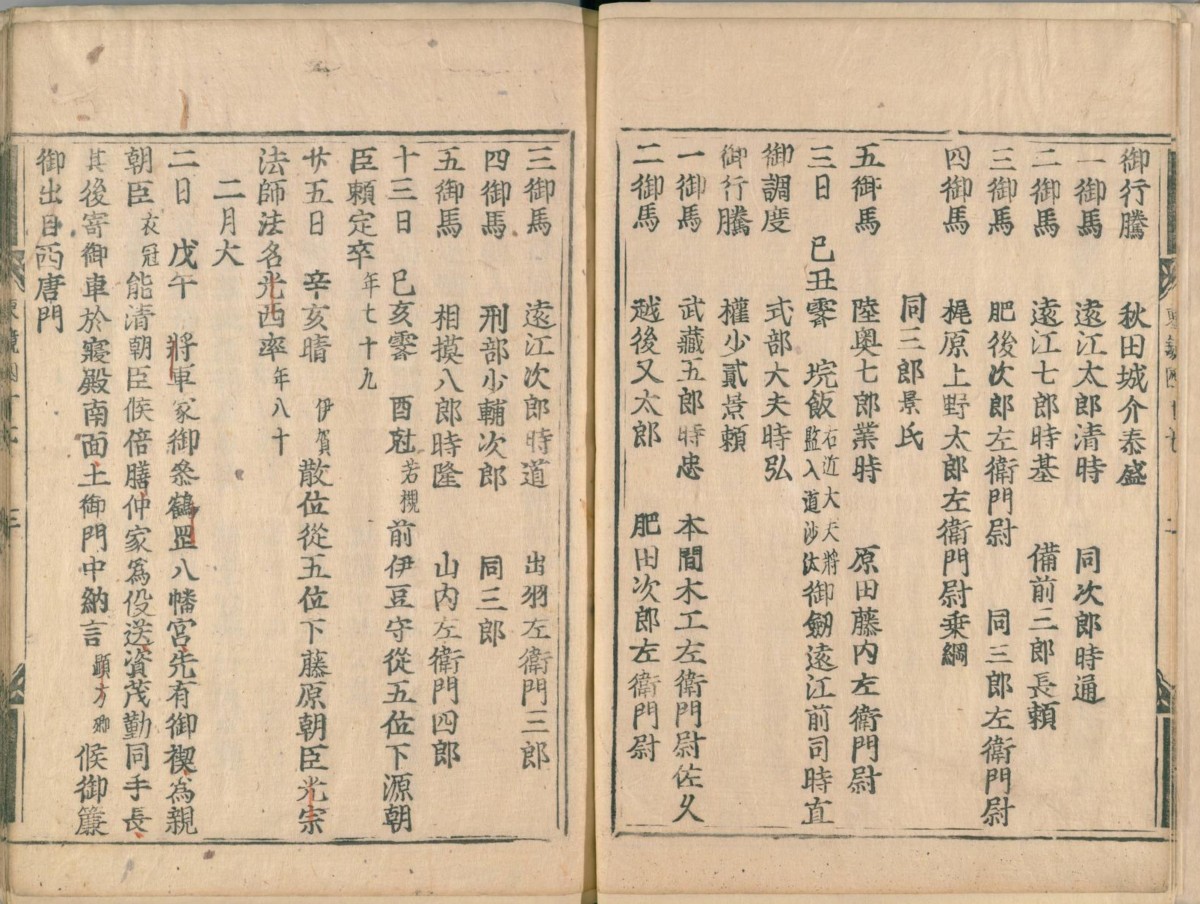 御行騰　秋田城介泰盛
一御馬　遠江太郎清時　同次郎時通
二御馬　遠江七郎時基　備前三郎長頼
三御馬　肥後次郎左衛門尉　同三郎左衛門尉
四御馬　梶原上野太郎左衛門尉乗綱
同三郎景氏
五御馬　陸奥七郎業時　原田藤内左衛門尉
三日　己丑霽　垸飯右近大夫將監入道沙汰御劔遠江前司時直
御調度　式部大夫時弘
御行騰　權少貳景頼
一御馬　武藏五郎時忠　本間木工左衛門尉佐久
二御馬　越後又太郎　肥田次郎左衛門尉
三御馬　遠江次郎時道　出羽左衛門三郎
四御馬　刑部少輔次郎　同三郎
五御馬　相摸八郎時隆　山内左衛門四郎
十三日　己亥霽　酉尅若槻前伊豆守從五位下源朝
臣頼定卒年七十九
廿五日　辛亥晴　伊賀散位從五位下藤原朝臣光宗
法師法名光西卒年八十
二月大
二日　戊午　將軍家御參鶴罡八幡宮先有御禊為親
朝臣衣冠能清朝臣候倍膳仲家爲役送資茂勤同手長
其後寄御車於寢殿南面土御門中納言顯方卿候御簾
御出自西唐門